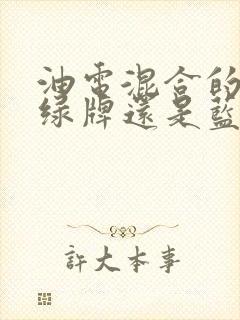 油電混合的
綠牌還是藍
許大本事